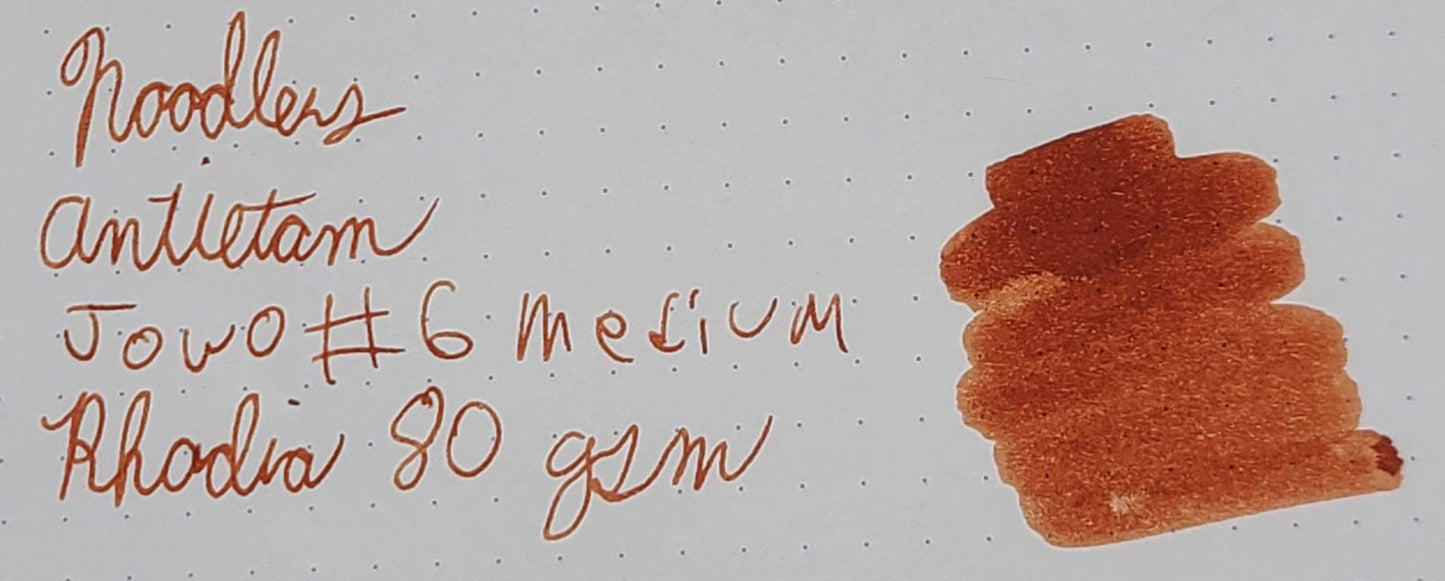 Noodlers
Antietam
Jowo #6 medium
Rhodia 80 gsm